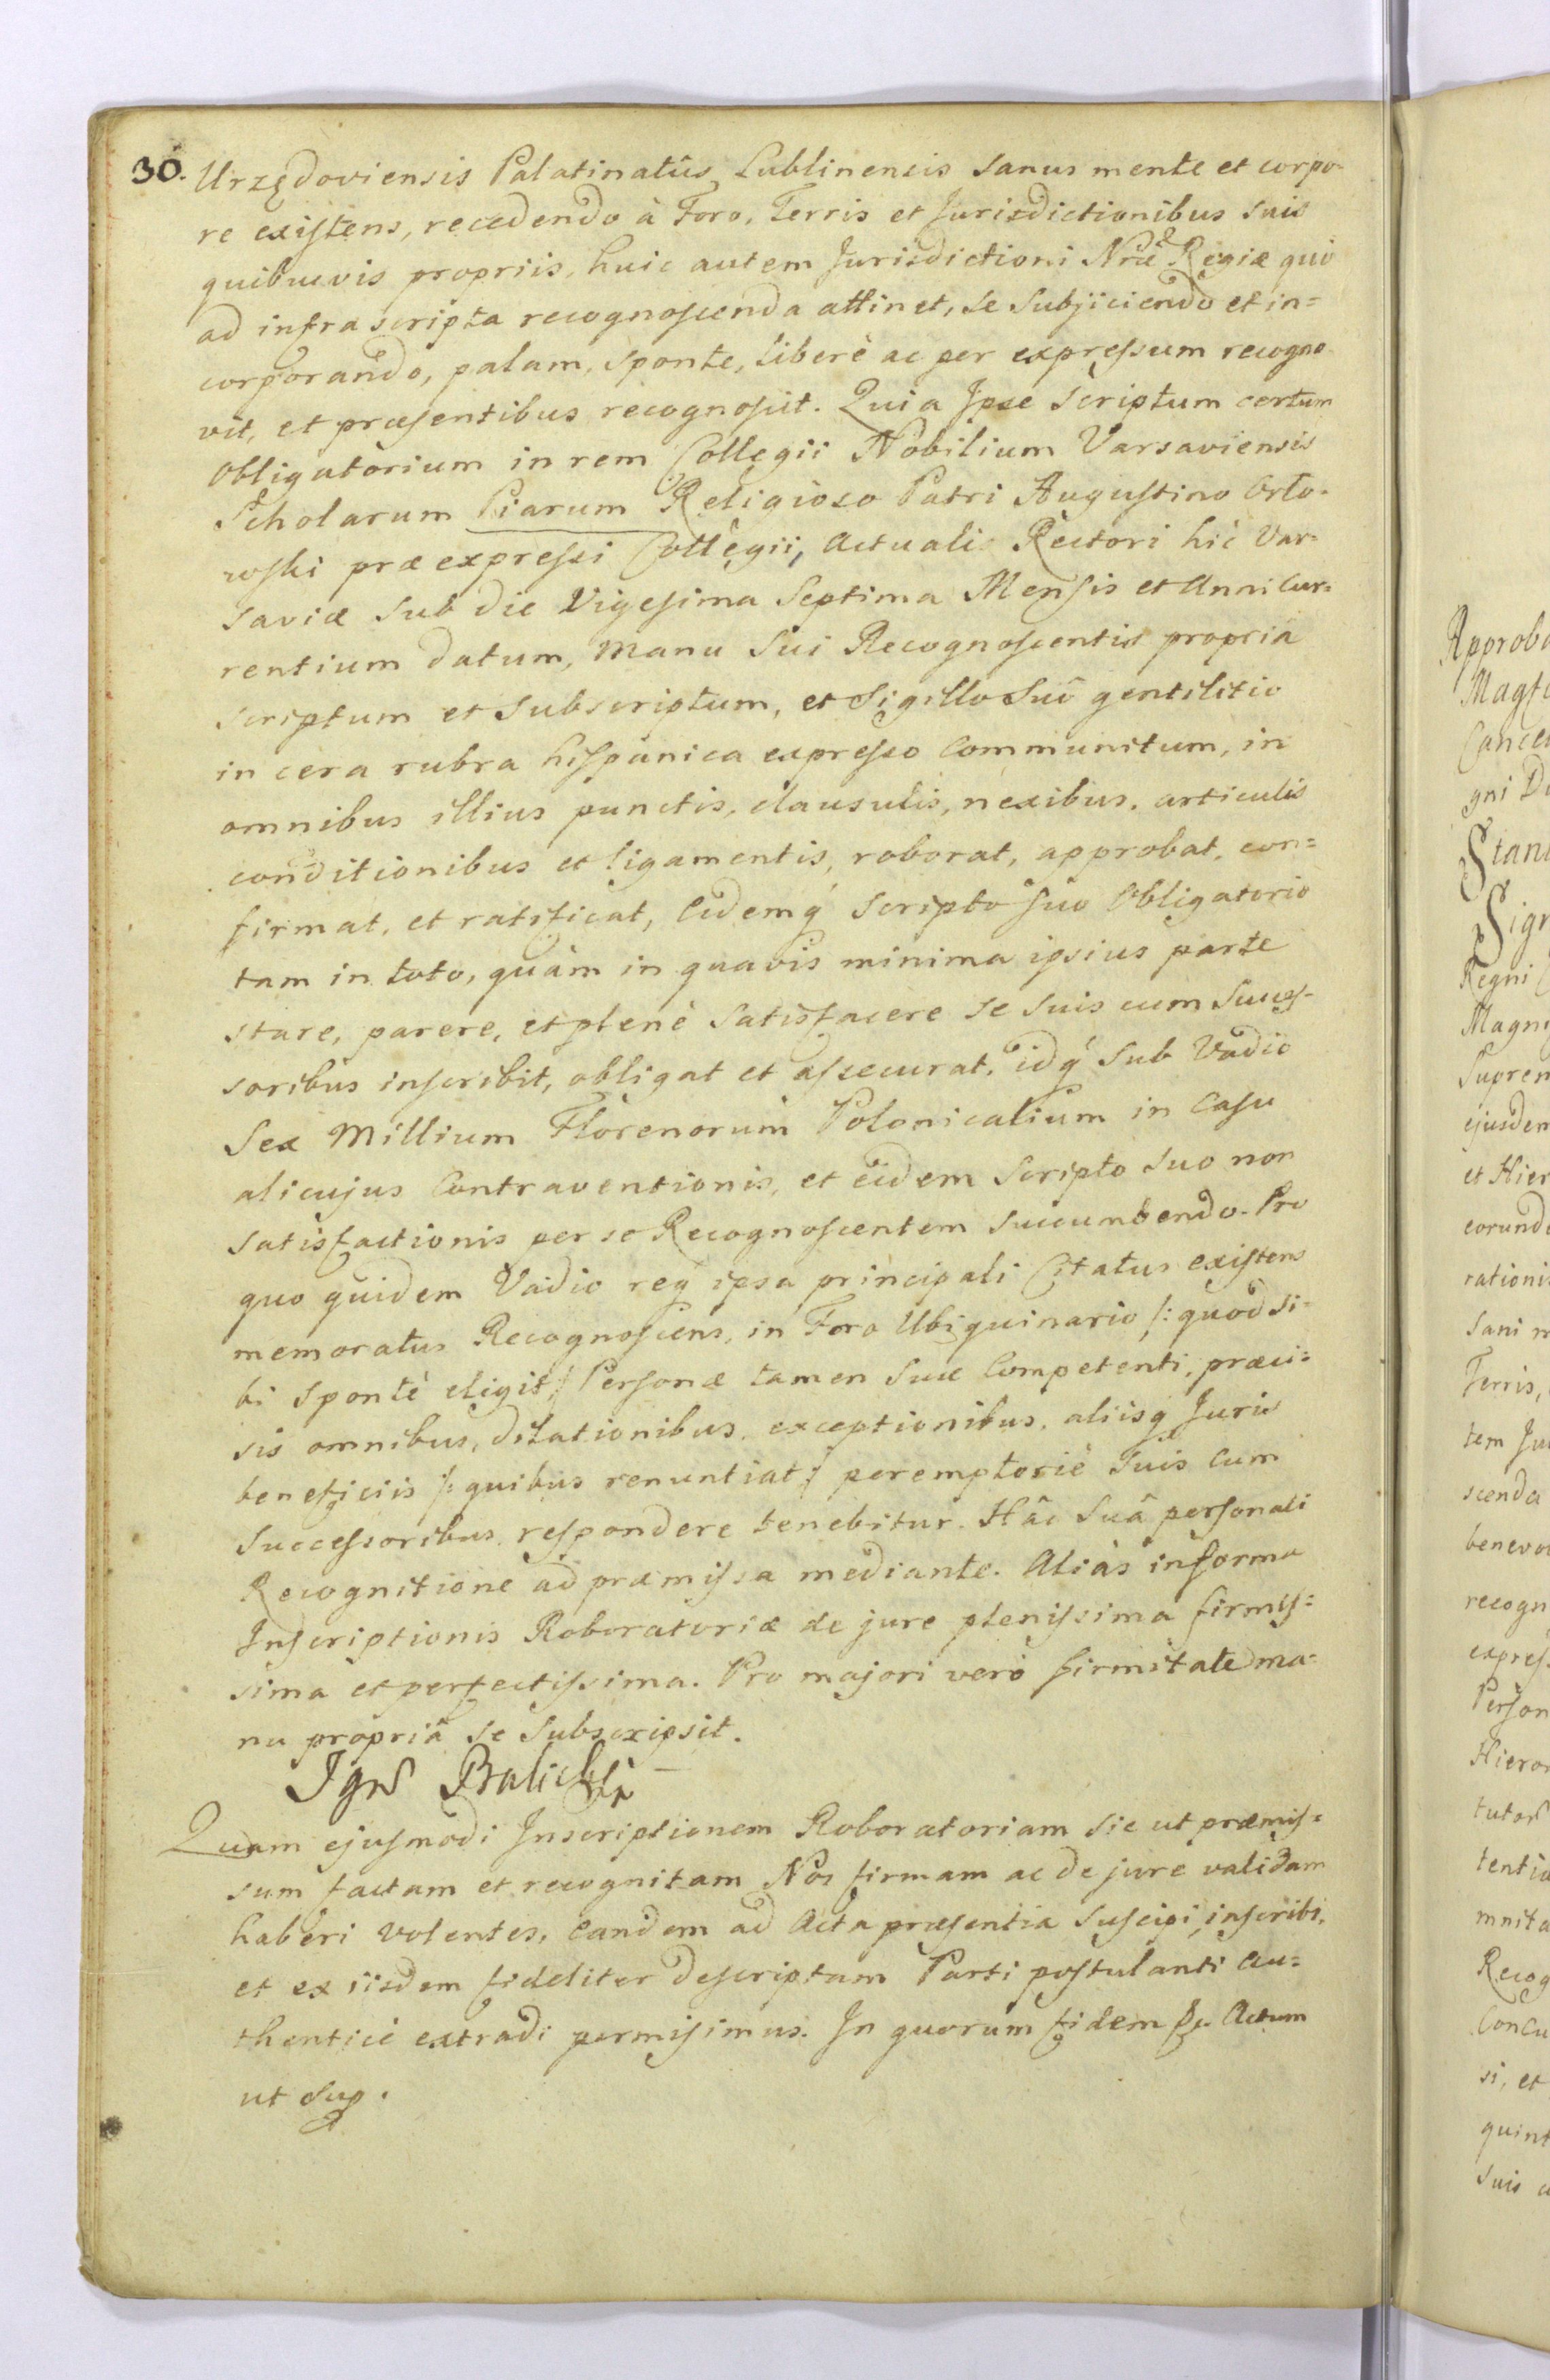 30. Urzędoviensis Palatinatûs Lublinensis sanus mente et corpo-
re existens, recedendo à Foro, Terris et Jurisdictionibus suis
quibusvis propriis, huic autem Jurisdictioni Nrae Regiæ quò
ad infrascripta recognoscenda attinet, se subjiciendo et in=
corporando, palam, sponte, liberè ac per expressum recogno
vit, et præsentibus recognoscit. Quia Ipse Scriptum certum
Obligatorium in rem Collegii Nobilium Varsaviensis
Scholarum Piarum Religioso Patri Augustino Orło-
wski præexpressi Collegii, Actuali Rectori hic Var-
saviæ sub die Vigesima Septima Mensis et Anni Cur-
rentium datum, manu Sui Recognoscentis propria
scriptum et subscriptum, et Sigillo Suo gentilitio
in cera rubra hispanica expresso Communitum, in
omnibus illius punctis, clausulis, nexibus, articulis
conditionibus et ligamentis, roborat, approbat, con=
firmat, et ratificat, Eidemq́ scripto suo Obligatorio
tam in toto, quàm in quavis minima ipsius parte
stare, parere, et plenè satisfacere se suis cum Succes-
soribus inscribit, obligat et assecurat, idq́ sub Vadio
Sex Millium Florenorum Polonicalium in Casu
alicujus Contraventionis, et eidem Scripto suo non
satisfactionis per se Recognoscentem succumbendo. Pro
quo quidem Vadio req́ ipsa principali Citatus existens
memoratus Recognoscens, in Foro Ubiquinario /: quod si-
bi spontè eligit :/ Personæ tamen suæ Competenti, præci=
sis omnibus, dilationibus, exceptionibus, aliisq́ Juris
beneficiis /: quibus renuntiat :/ peremptoriè suis cum
Successoribus respondere tenebitur. Hâc Suâ personali
Recognitione ad præmissa mediante. Aliàs in forma
Inscriptionis Roboratoriæ de jure plenissima firmis=
sima et perfectissima. Pro majori verò firmitate ma=
nu propriâ se subscripsit.
Ign Balicki
Quam ejusmodi Inscriptionem Roboratoriam sic ut præmis=
sum factam et recognitam Nos firmam ac de jure validam
haberi volentes, eandem ad Acta præsentia suscipi, inscribi,
et ex iisdem fideliter descriptam Parti postulanti au=
thenticè extradi permisimus. In quorum fidem &c. Actum
ut sup.
Approb
Magfc
Cance
gni D
Stani
Sign
Regni
Magn
Suprem
ejusdem
et Hier
eorund
rationis
sani m
Terris,
tem Ju
scenda
benevo
recogn
express
Person
Hiero
tutor
tentia
mnita
Recog
Concu
si, et
quint
suis